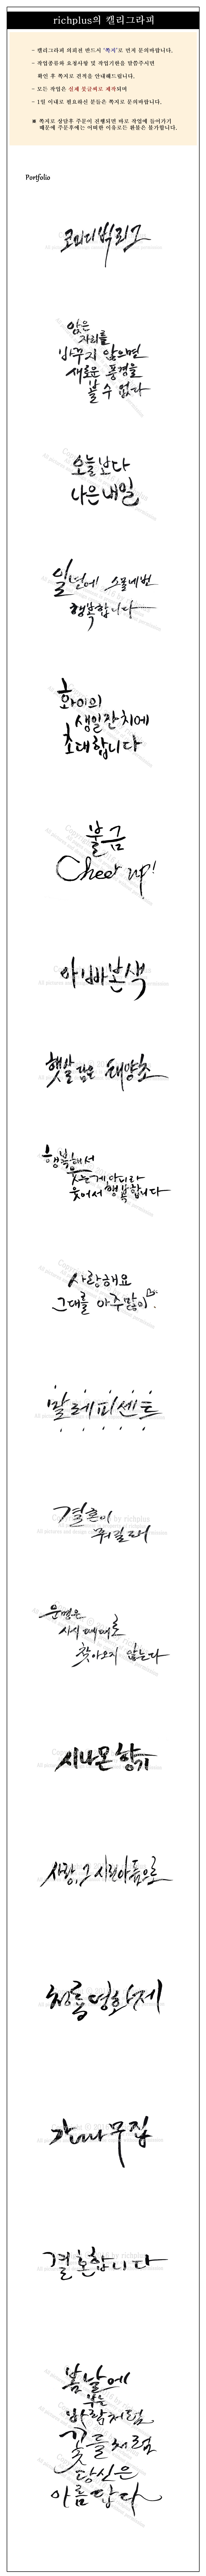 richplus의 캘리그라피
- 캘리그라피 의뢰전 반드시 '쪽지'로 먼저 문의바랍니다.
- 작업종류와 요청사항 및 작업기한을 말씀주시면
확인 후 쪽지로 견적을 안내해드립니다.
- 모든 작업은 실제 붓글씨로 제작되며
- 1일 이내로 필요하신 분들은 쪽지로 문의바랍니다.
※ 쪽지로 상담후 주문이 진행되면 바로 작업에 들어가기
때문에 주문후에는 어떠한 이유로든 환불은 불가합니다.
Portfolio
코미디빅리그
앉은
자리를
바꾸지 않으면
새로운 풍경을
볼 수 없다
오늘보다
나은 내일
일년에 스물네번
행복합니다
환이의
생일잔치에
초대합니다
불금
Cheer up!
아빠본색
햇살 담은 태양초
행복해서
웃는게 아니라
웃어서 행복합니다
사랑해요
그대를 아주 많이.
말레피센트
결혼이
뭐길래
운명은
시시때때로
찾아오지 않는다
시나몬 향기
사랑, 그 시린아픔으로
청룡영화제
감나무집
결혼합니다
봄날에
부는
바람처럼
꽃들처럼
당신은
아름답다